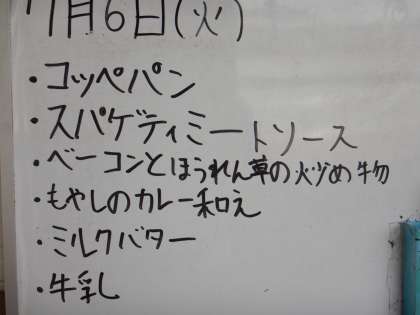 7月6日(火)
・コッペパン
・スパゲディミートソース
・ベーコンとほうれん草の炒め物
・もやしのカレー和え
・ミルクバター
・牛乳